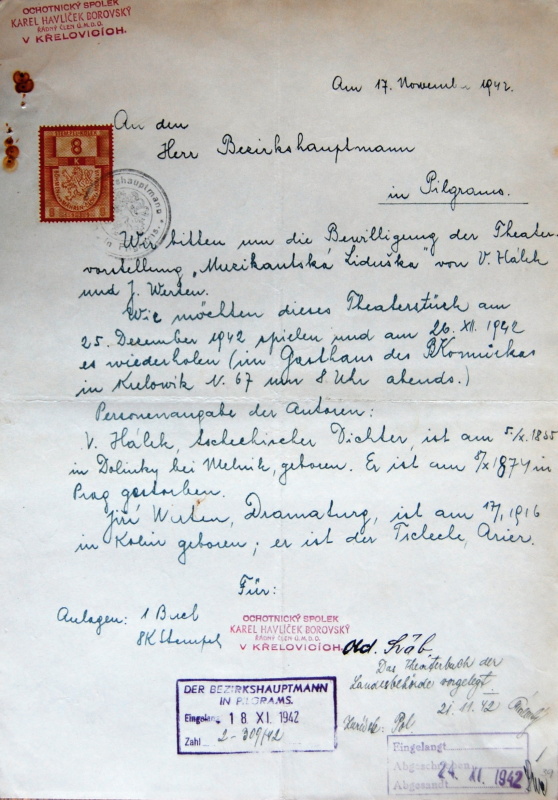 OCHOTNICKÝ SPOLEK
KAREL HAVLÍČEK BOROVSKÝ
ŘÁDNÝ ČLEN Ú.M.D.O.
V KŘELOVICÍCH.
Am 17. November 1942.
An den
Herr Bezirkshauptmann
in Pilgrams.
8
K
Bezirkshauptmann
in Pilgrams
Wir bitten um die Bewilligung der Theater-
vorstellung „Muzikantská Liduška" von V. Hálek
und J. Werten.
Wie möchten dieses Theaterstück am
25. Dezember 1942 spielen und am 26. XII. 1942
es wiederholen (im Gasthaus des
in Krelowitz N. 67 um 8 Uhr abends.)
Personenangabe der Autoren:
V. Hálek, tschechischer Dichter, ist am 5/IV. 1835
in Dolinky bei Melnik, geboren. Er ist am 8/X 1874 in
Prag gestorben.
Jiří Wrten, Dramaturg, ist am 17/1916
in Kolin geboren; er ist der Tscheche, Arier.
Für:
Anlagen: 1 Buch
8K Stempel
OCHOTNICKÝ SPOLEK
KAREL HAVLÍČEK BOROVSKÝ
ŘÁDNÝ ČLEN Ú.M.D.O.
V KŘELOVICÍCH.
Old. Šváb.
Das Theaterbuch der
Landesbehörde vorgelegt
21. 11. 42
Zurück: Pol.
DER BEZIRKSHAUPTMANN
IN PILGRAMS.
Eingelang. 18. XI. 1942
Zahl 2-309/42
Eingelangt
Abgeschrieben
Abgesandt 24. XI. 1942